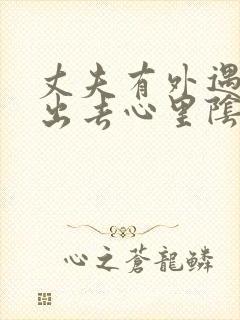 丈夫有外遇
出去心里陰
心之蒼龍鱗